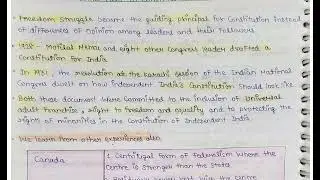 Freedom Struggle became the guiding principal for Constitution instead
of differences of Opinion among leaders and their followers
1928 - Motilal Nehru and eight other Congress leader drafted a
Constitution for India
In 1931, the resolution at the Karachi Session of the Indian National
Congress dwelt on how independent India's Constitution should look like
Both these document where committed to the inclusion of Universal
adult Franchise, Right to Freedom and equality and to protecting the
rights of minorities in the Constitution of Independent India.
We learn from other experiences also
Canada
1. Centrifugal form of Federalism where the
Centre is stronger than the States
2. Residuary